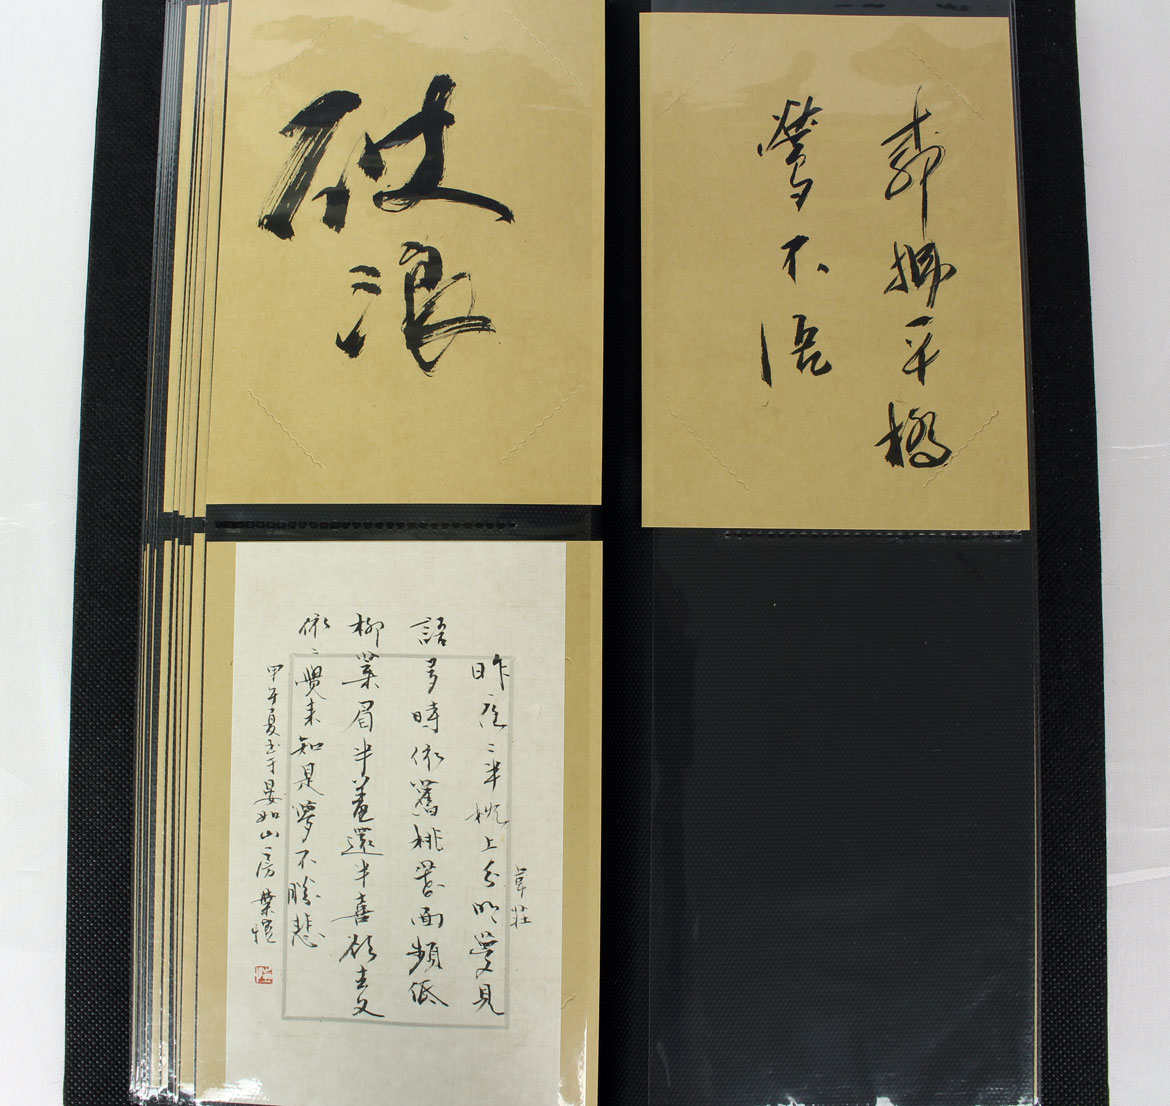 浪
柳平橋
鶯不語
韋莊
昨夜〻半枕上分明夢見
語多時依舊桃花面頻低
柳葉眉半羞還半喜欲去又
依〻覺來知是夢不勝悲
甲午夏書于晏如山房葉